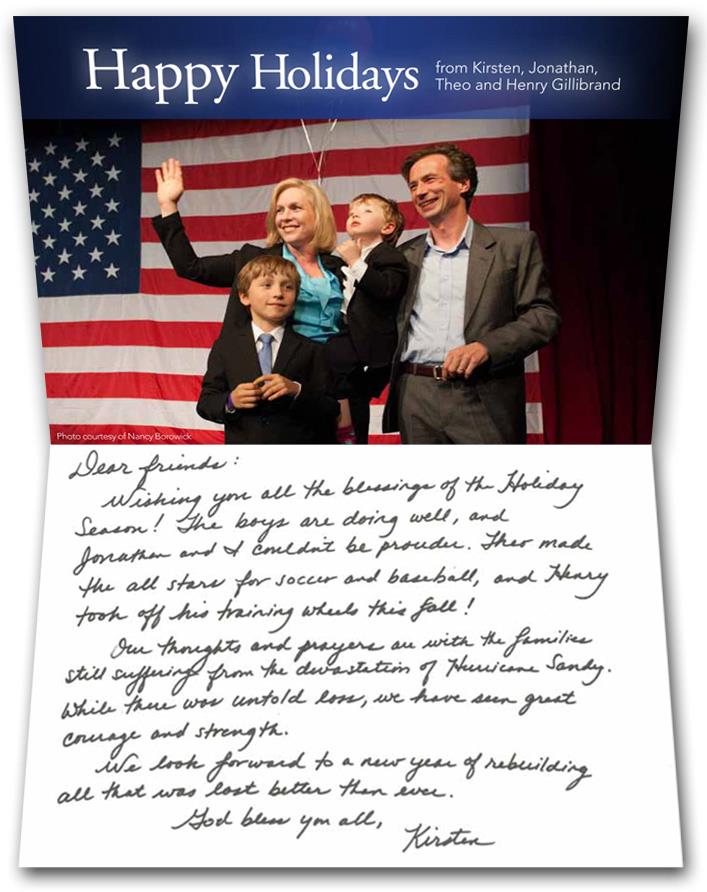 Happy Holidays
from Kirsten, Jonathan,
Theo and Henry Gillibrand
Photo courtesy of Nancy Borowick
Dear friends:
Wishing you all the blessings of the Holiday
Season! The boys are doing well, and
Jonathan and I couldn't be prouder. Theo made
the all stars for soccer and baseball, and Henry
took off his training wheels this fall!
Our thoughts and prayers are with the families
still suffering from the devastation of Hurricane Sandy.
While there was untold loss, we have seen great
courage and strength.
We look forward to a new year of rebuilding
all that was lost better than ever.
God bless you all,
Kirsten